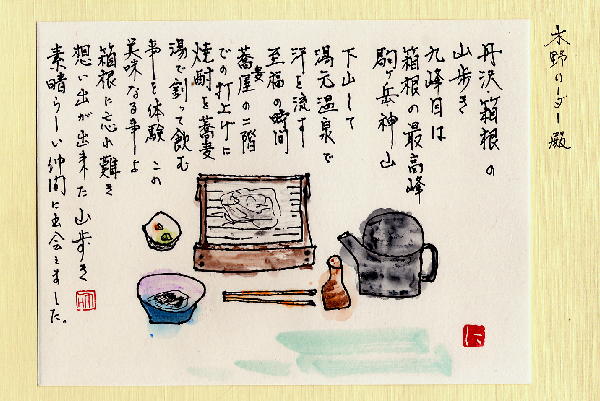 木野リーダー殿
丹沢箱根の
山歩き
九峰目は
箱根の最高峰
駒ヶ岳神山
下山して
湯元温泉で
汗を流す
至福の時間
蕎麦屋の二階
での打上げに
焼酎を蕎麦
湯で割って飲む
事を体験 この
美味なる事よ
箱根に忘れ難き
想い出が出来た 山歩き
素晴らしい仲間に出会えました。